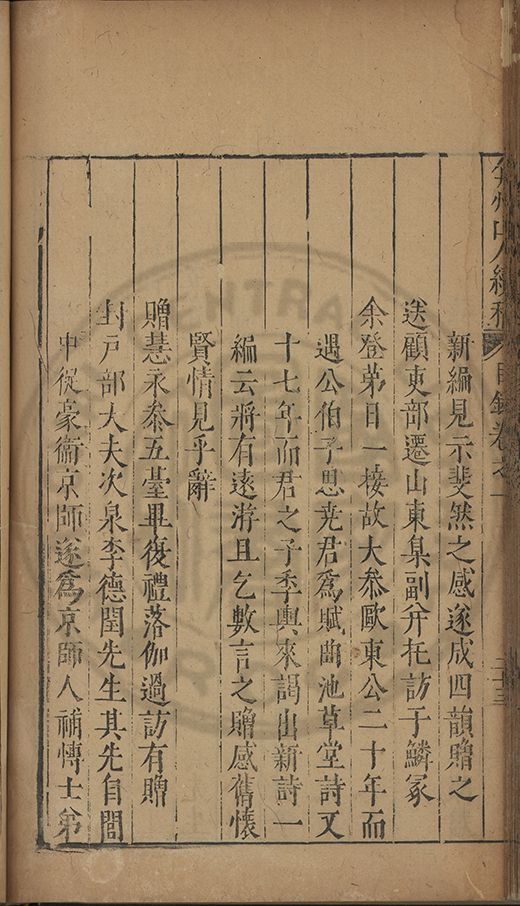 弇州山人續稿 目錄卷之一 二十三
新編見示斐然之感遂成四韻贈之
送顧吏部遷山東臬副并托訪于鱗冡
余登第日一接故大叅歐東公二十年而
遇公伯子思尭君爲賦曲池草堂詩又
十七年而君之子季輿來謁出新詩一
編云將有遠游且乞數言之贈感舊懷
賢情見乎辭
贈慧永叅五臺畢復禮落伽過訪有贈
封戶部大夫次泉李德閏先生其先自閻
中從豪衞京師遂爲京師人補愽士弟